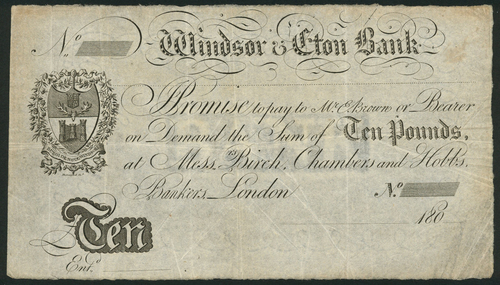 No
Windsor & Eton Bank
I Promise to pay to Mr. E. Brown or Bearer
on Demand the Sum of Ten Pounds,
at Mess.rs Birch, Chambers and Hobbs,
Bankers, London No
180
Ten
Entd.